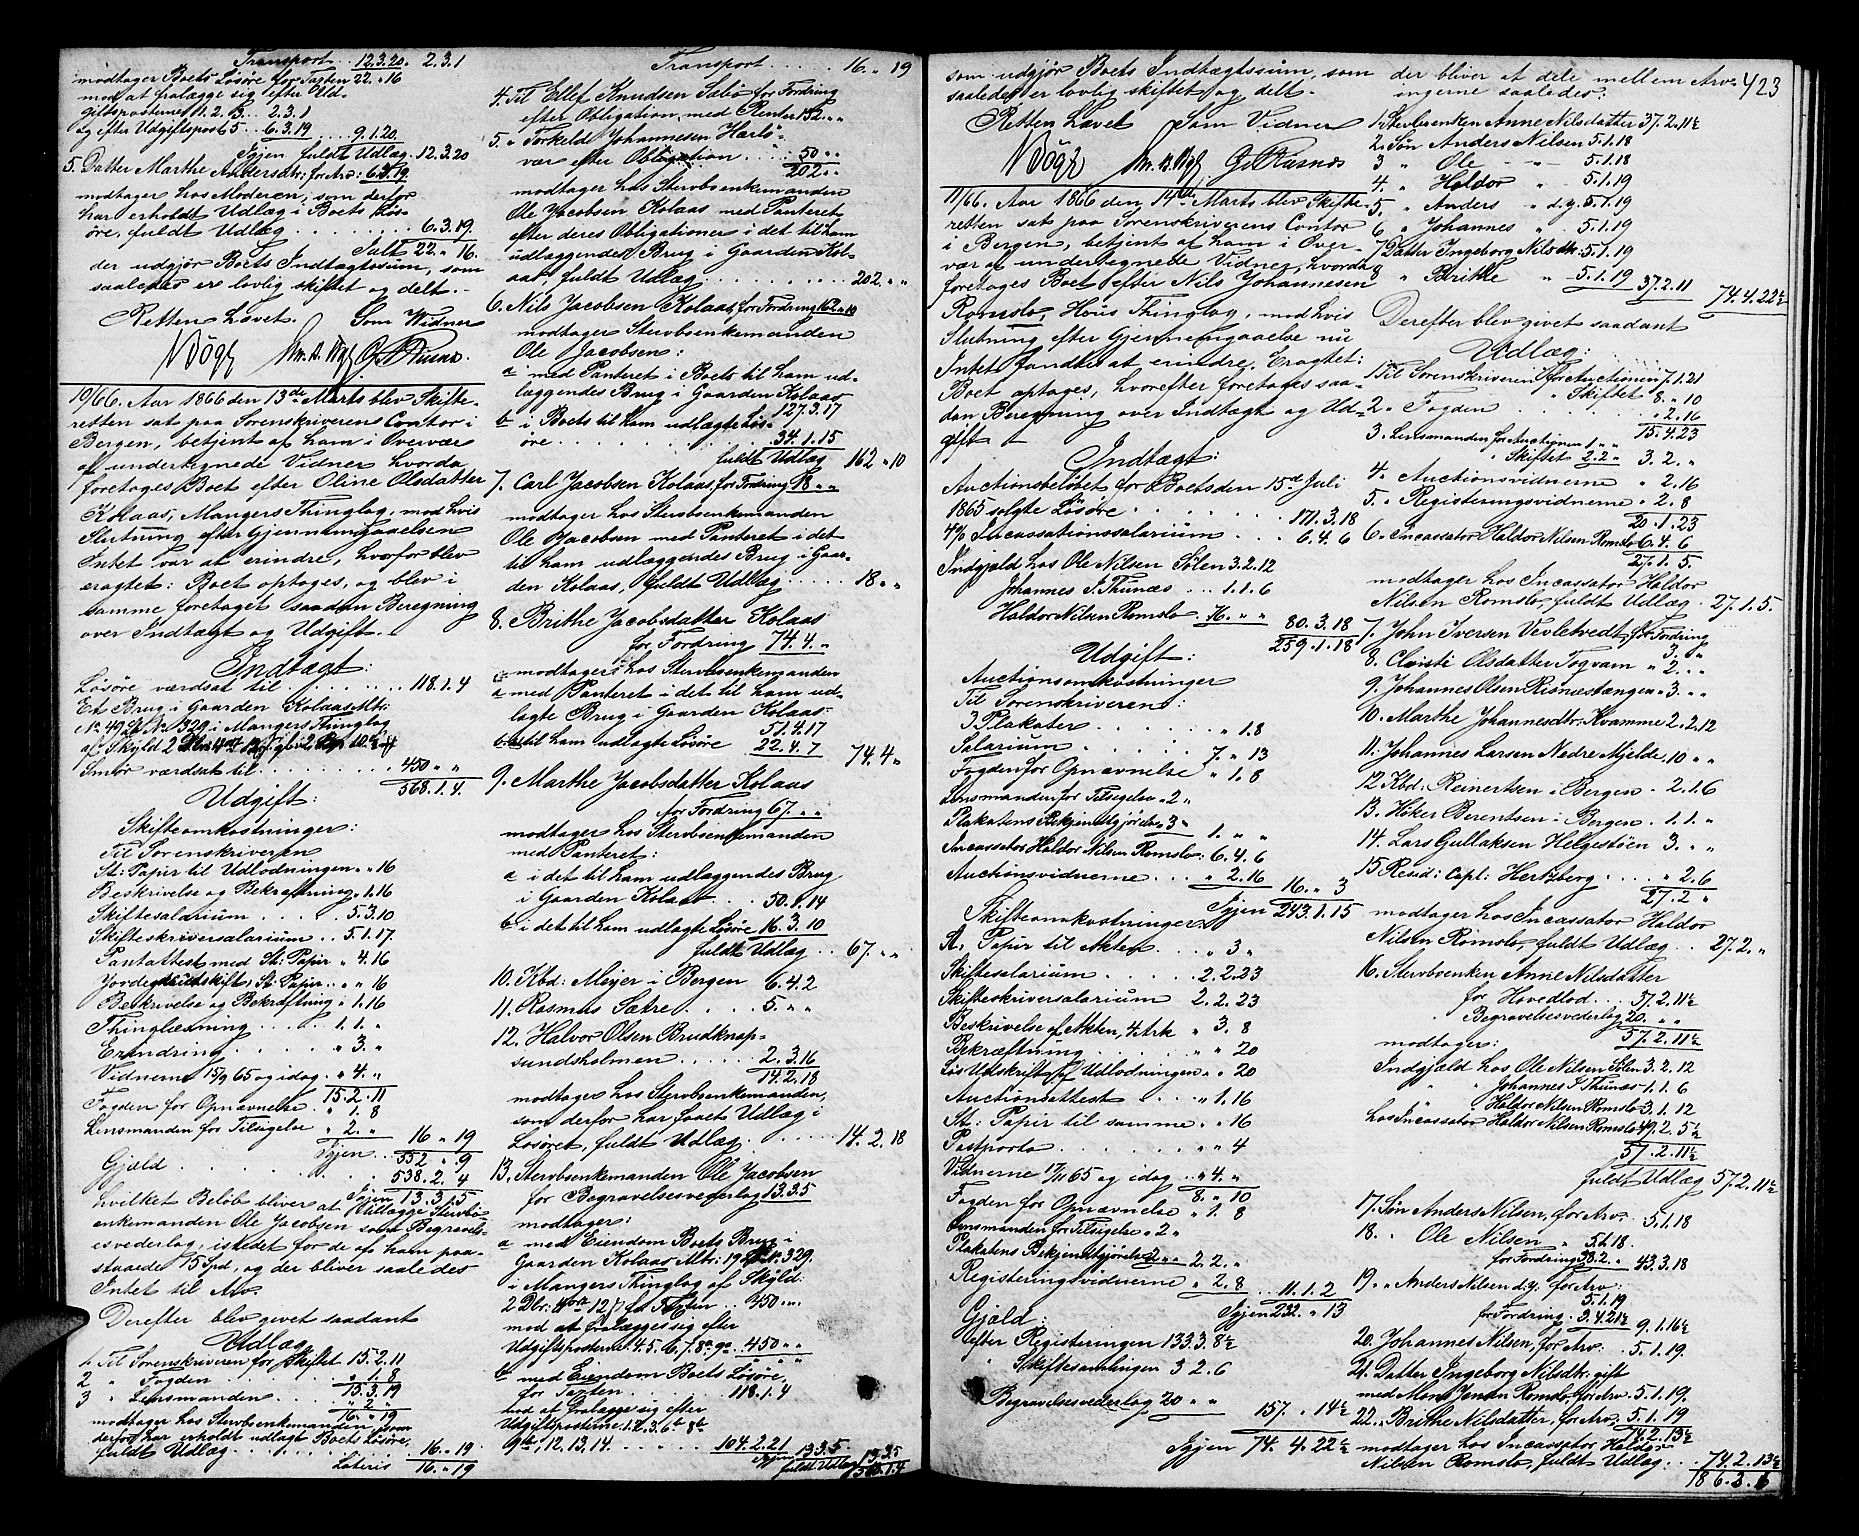 Transport . . 12.3.20. 2.3.1
modtager Boets Løsøre for Taxten 22. " 16
mod at fralægge sig efter Ud-
giftsposterne 1.2.3. . . 2.3.1
og efter Udgiftspost 5 . . 6.3.19 9.1.20.
Igjen fuldt Udlæg . 12.3.20
5. Datter Marthe Andersdtr: for Arv: 6.3.19
modtager hos Moderen, som derfor
har erholdt Udlæg i Boets Løs-
øre, fuldt Udlæg . . . . . . . . 6.3.19.
Salt 22. " 16.
der udgjør Boets Indtægtssum, som
saaledes er lovlig skiftet og delt. -
Retten hævet. Som Vidner
10/66. Aar 1866 den 13de Marts blev Skifte-
retten sat paa Sorenskriverens Contor i
Bergen, betjent af ham i Overvær
af undertegnede Vidner, hvorda
foretoges Boet efter Oline Olsdatter
Kolaas, Mangers Thinglag, mod hvis
Slutning efter Gjennemgaaelsen
Intet var at erindre, hvorfor blev
eragtet: Boet optages, og blev i
samme foretaget saadan Beregning
over Indtægt og Udgift. -
Indtægt:
Løsøre værdsat til . . . . . . . . 118.1.4
Et Brug i Gaarden Kolaas Mtr:
i Mangers Thinglag
Smør værdsat til . . . . . . . 450 " "
568.1.4.
Udgift:
Skifteomkostninger:
Til Sorenskriveren
St: Papir til Udlodningen " " 16
Beskrivelse og Bekræftning " 1.16
Skiftesalarium . . . . 5.3.10
Skifteskriversalarium . . 5.1.17.
Pantattest med St: Papir " 4.16
St: Papir . . " " 16
Beskrivelse og Bekræftning " 1.16
Thinglæsning . . . . 1.1. "
Erindring . . . . . " 3. "
Vidnerne 15/9 65 og idag . " 4. "
15.2.11
Fogden for Opnævnelse . " 1.8
Lensmanden for Tilsigelse " 2. " 16 " 19
Igjen . . 552 " 9
Gjæld . . . . . . . . 538.2.4
Igjen 13.3.5
hvilket Beløb bliver at tillægge Sterbo-
enkemanden Ole Jacobsen som Begravel-
sesvederlag, istedet for de af ham paa-
staaede 15 Spd, og der bliver saaledes
Intet til Arv.
Derefter blev givet saadant
Udlæg
1. Til Sorenskriveren for Skiftet 15.2.11
2 " Fogden . . . . . . . " 1.8
15.3.19
3 " Lensmanden . . . . . " 2 "
16. " 19
modtager hos Sterboenkemanden, som
derfor har erholdt udlagt Boets Løsøre,
fuldt Udlæg . . . . . . . 16. " 19
Lateris 16. " 19
Transport . . . . . . 16. " 19
4. Til Ellef Knudsen Sæbø for Fordring
efter Obligation med Renter 152. " "
5. " Torkeld Johannesen Herlø-
vær efter Obligation . . . . 50 " "
202. " "
modtager hos Sterboenkemanden
Ole Jacobsen Kolaas med Panteret
efter deres Obligationer i det til ham
udlæggende Brug i Gaarden Kol-
aas, fuldt Udlæg . . . . . . . . . 202. " "
6. Nils Jacobsen Kolaas, for Fordring 162 " 10
modtager Sterboenkemanden
Ole Jacobsen:
a med Panteret i Boets til ham ud-
læggendes Brug i Gaarden Kolaas
127.3.17
b i Boets til ham udlagte Løs-
øre . . . . . . . . . . . 34.1.15
fuldt Udlæg 162 " 10
7. Carl Jacobsen Kolaas, for Fordring 18 " "
modtager hos Sterboenkemanden
Ole Jacobsen med Panteret i det
til ham udlæggendes Brug i Gaar-
den Kolaas, fuldt Udlæg . . . . 18 " "
8. Brithe Jacobsdatter Kolaas
for Fordring 74.4. "
modtager hos Sterboenkemanden
a med Panteret i det til ham ud-
lagte Brug i Gaarden Kolaas
51.4.17
til ham udlagte Løsøre 22.4.7 74.4 "
9. Marthe Jacobsdatter Kolaas
for Fordring 67. " "
modtager hos Sterboenkemanden
med Panteret:
a i det til ham udlæggendes Brug
i Gaarden Kolaas . . . 50.1.14
b i det til ham udlagte Løsøre 16.3.10
fuldt Udlæg . . 67. " "
10. Kbd: Meyer i Bergen 6.4.2
11. Rasmus Sætre . . . . 5. " "
12. Halvor Olsen Brudknap-
sundsholmen . . . . . 2.3.16
14.2.18
modtager hos Sterboenkemanden,
som derfor har faaet Udlæg i
Løsøret, fuldt Udlæg . . . . . . 14.2.18
13. Sterboenkemanden Ole Jacobsen
for Begravelsesvederlag 13.3.5
modtager:
a med Eiendom Boets Brug i
Gaarden Kolaas Mtr:
i Mangers Thinglag af Skyld:
for Taxten . . 450 " "
mod at fralægge sig efter
Udgiftsposterne 4.5.6.7.8a 9a 450 " "
b med Eiendom Boets Løsøre,
for Taxten . . . . . . . 118.1.4
mod at fralægge sig efter
Udgiftsposterne 1.2.3.6b 8b
9b, 12, 13, 14. . . . . . 104.2.21
Igjen 13.3.5
fuldt Udlæg 13.3.5
568.1.4
423
som udgjør Boets Indtægtssum, som
saaledes er lovlig skiftet og delt. -
Retten hævet Som Vidner
11/66. Aar 1866 den 14de Marts blev Skifte-
retten sat paa Sorenskriverens Contor
i Bergen, betjent af ham i Over-
vær af undertegnede Vidner, hvorda
foretoges Boet efter Nils Johannesen
Romslo, Hous Thinglag, mod hvis
Slutning efter Gjennemgaaelse nu
Intet fandtes at erindre. Eragtet:
Boet optages, hvorefter foretoges saa-
dan Beregning over Indtægt og Ud-
gift -
Indtægt:
Auctionsbeløbet for Boets den 15de Juli
1865 solgte Løsøre . . . . . . . 171.3.18
4% Incassationssalarium . . . 6.4.6
Indgjæld hos Ole Nilsen Solen 3.2.12
Johannes I. Thunæs . . . 1.1.6
Haldor Nilsen Romslo . 76. " " 80.3.18
259.1.18
Udgift:
Auctionsomkostninger
Til Sorenskriveren:
3 Plakater . . . . . . . " 1.8
Salarium . . . . . . . 7. " 13
Fogden for Opnævnelse " 1.8
Lensmanden for Tilsigelse " 2 "
Plakatens Bekjendtgjørelse 3 " 1. " "
Incassator Haldor Nilsen Romslo: 6.4.6
Auctionsvidnerne . . . . " 2.16 16. " 3
Igjen 243.1.15
Skifteomkostninger:
St: Papir til Akten . . . . " 3 "
Skiftesalarium . . . . . 2.2.23
Skifteskriversalarium 2.2.23
Beskrivelse af Akten, 4 Ark " 3.8
Bekræftning . . . . . . " " 20
Udskrift af Udlodningen " " 20
Auctionsattest . . . " 1.16
St: Papir til samme . . " " 16
Postporto . . . . . . " " 4
Vidnerne 17/11 65 og idag . . " 4. "
8. " 10
Fogden for Opnævnelse . " 1.8
Lensmanden for Tilsigelse " 2 "
Plakatens Bekjendtgjørelse 2. " " 2.2. "
Registeringsvidnerne . " 2.8 11.1.2
Igjen 232. " 13
Gjæld:
efter Registeringen 133.3.8½
" Skiftesamlingen 3 2.6
Begravelsesvederlag 20 " " 157. " 14½
Igjen 74.4.22½
der bliver at dele mellem Arv-
ingerne saaledes:
1. Sterboenken Anne Nilsdatter 37.2.11½
2. Søn Anders Nilsen 5.1.18
3 " Ole - " - 5.1.18
4. " Haldor " 5.1.19
5. " Anders " d.y. 5.1.19
6 " Johannes " . 5.1.19
7 Datter Ingeborg Nilsdtr: 5.1.19
8 " Brithe " 5.1.19 37.2.11
74.4.22½
Derefter blev givet saadant
Udlæg:
1 Til Sorenskriveren for Auctionen 7.1.21
" Skiftet 8. " 10
2 " Fogden . . . . . . . . " 2.16
15.4.23
3. Lensmanden for Auctionen 1 " "
" Skiftet 2.2 " 3.2. "
4. " Auctionsvidnerne " 2.16
5. " Registeringsvidnerne " 2.8
20.1.23
6. Incassator Haldor Nilsen Romslo 6.4.6
27.1.5.
modtager hos Incassator Haldor
Nilsen Romslo, fuldt Udlæg . 27.1.5.
7. John Iversen Vevletvedt, for Fordring
3. "
8. Christi Olsdatter Togvam " 2. "
9. Johannes Olsen Risnæstangen " 3. " "
10. Marthe Johannesdtr: Kvamme 2.2.12
11. Johannes Larsen Nedre Mjelde 10 " "
12 Kbd: Reinertsen i Bergen . 2.1.6
13. Høker Berentsen - Bergen . 1.1. "
14. Lars Gullaksen Helgestöen 3. " "
15 Resid: Capl: Hertzberg . . . . " 2.6
27.2 "
modtager hos Incassator Haldor
Nilsen Romslo, fuldt Udlæg . . 27.2. "
16. Sterboenken Anne Nilsdatter
for Hovedlod . . 37.2.11½
" Begravelsesvederlag 20. " "
57.2.11½
modtager:
Indgjæld hos Ole Nilsen Solen 3.2.12
" Johannes I. Thunæs 1.1.6
" Haldor Nilsen Romslo 3.1.12
hos Incassator Haldor Nilsen Romslo 49.2.5½
57.2.11½
fuldt Udlæg 57.2.11½
17. Søn Anders Nilsen, for Arv . . 5.1.18
18. " Ole Nilsen " 5.1.18
for Fordring 38.2. " 43.3.18
19. " Anders Nilsen d.y. for Arv:
5.1.19
for Fordring 3.4.21½ 9.1.16½
20. Johannes Nilsen, for Arv . . 5.1.19.
21. Datter Ingeborg Nilsdtr: gift
med Romslo, for Arv 5.1.19
22. " Brithe Nilsdatter, for Arv: 5.1.19
74.2.13½
modtager hos Incassator Haldor
Nilsen Romslo, fuldt Udlæg . . . 74.2.13½
186.3.6